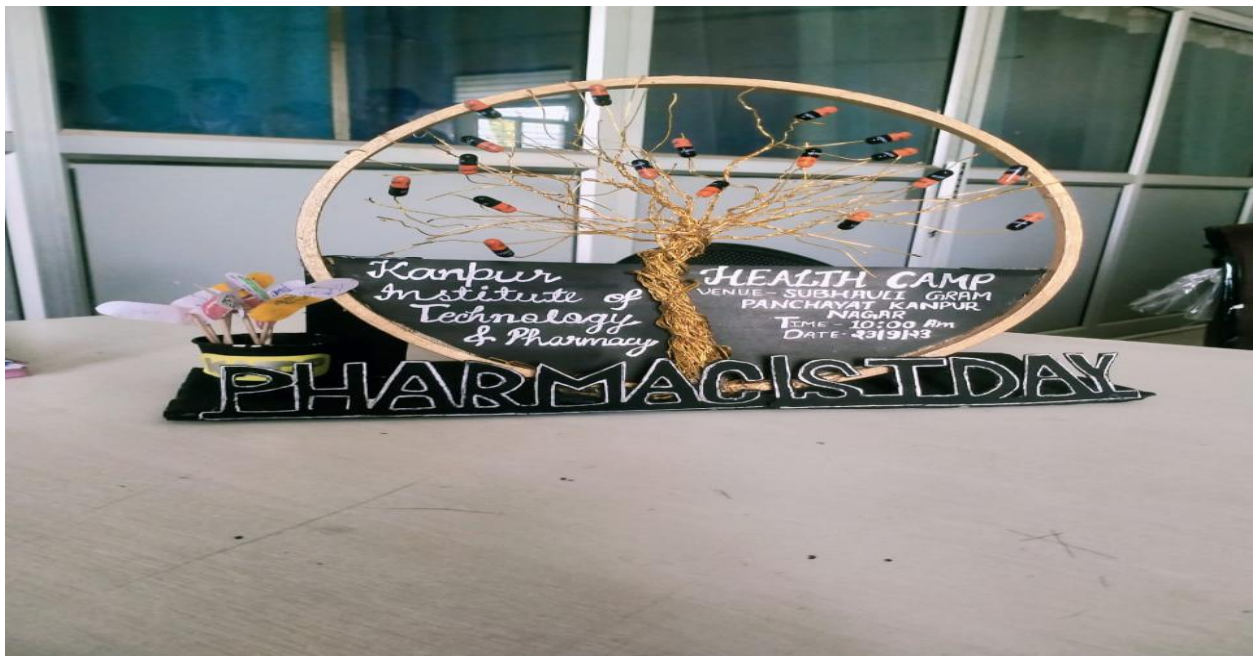 Kanpur
Institute of
Technology
& Pharmacy
HEALTH CAMP
VENUE- SUBHAULI GRAM
PANCHAYAT KANPUR
NAGAR
TIME - 10:00 Am
DATE- 23/9/23
PHARMACIST DAY